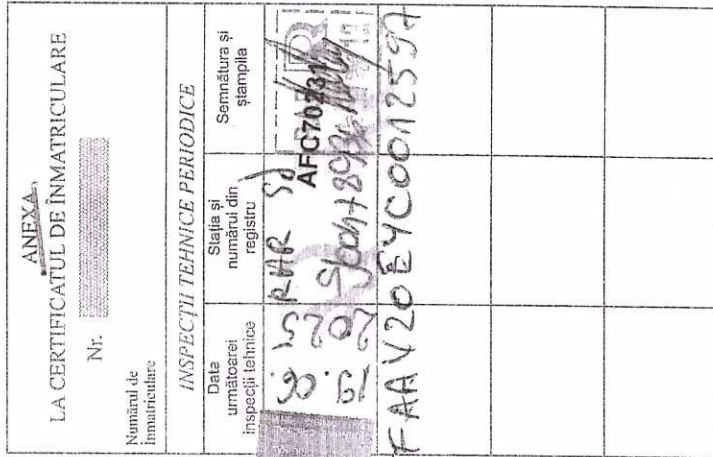 ANEXA
LA CERTIFICATUL DE ÎNMATRICULARE
Nr.
Numărul de
înmatriculare
INSPECȚII TEHNICE PERIODICE
Data
următoarei
inspecții tehnice
Stația și
numărul din
registru
Semnătura și
ștampila
19.06.
2025
RAR
AFC70231
FAAV20EYC0012597